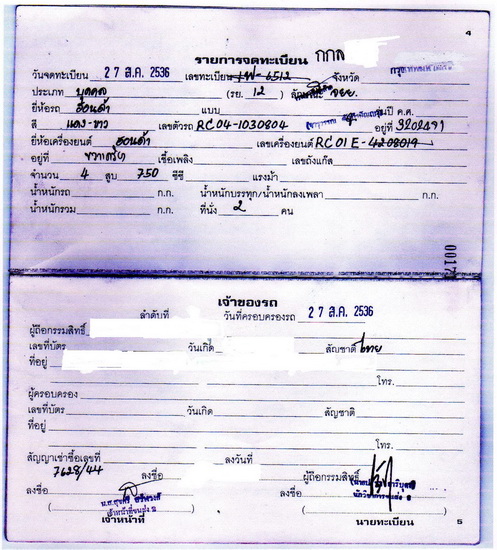 4
รายการจดทะเบียน กกล
วันจดทะเบียน 27 ส.ค. 2536 เลขทะเบียน 1ฬ-6512 จังหวัด กรุงเทพมหานคร
ประเภท บุคคล (รย. 12) ลักษณะ จยย.
ยี่ห้อรถ ฮอนด้า แบบ รุ่นปี ค.ศ.
สี แดง-ขาว เลขตัวรถ RC04-1030804 อยู่ที่
ยี่ห้อเครื่องยนต์ ฮอนด้า เลขเครื่องยนต์ RC01E-4208019
อยู่ที่ เชื้อเพลิง เลขถังแก๊ส
จำนวน 4 สูบ 750 ซีซี แรงม้า
น้ำหนักรถ ก.ก. น้ำหนักบรรทุก/น้ำหนักลงเพลา ก.ก.
น้ำหนักรวม ก.ก. ที่นั่ง 2 คน
0017
เจ้าของรถ
ลำดับที่ วันที่ครอบครองรถ 27 ส.ค. 2536
ผู้ถือกรรมสิทธิ์
เลขที่บัตร วันเกิด สัญชาติ ไทย
ที่อยู่
โทร.
ผู้ครอบครอง
เลขที่บัตร วันเกิด สัญชาติ
ที่อยู่
โทร.
สัญญาเช่าซื้อเลขที่ ลงวันที่
7628/44 ลงชื่อ ผู้ถือกรรมสิทธิ์
ลงชื่อ ลงชื่อ
เจ้าหน้าที่ นายทะเบียน
5